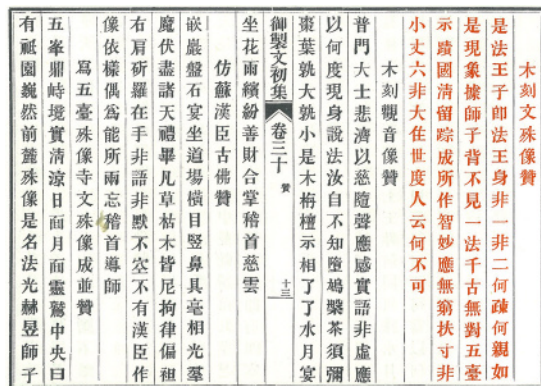 木刻文殊像贊
是法王子卽法王身非一非二何疎何親如
是現象據師子背不見一法千古無對五臺
示蹟國清留踪成所作智妙應無窮扶寸非
小丈六非大住世度人云何不可
木刻觀音像贊
普門大士悲濟以慈隨聲應感實語非虛應
以何度現身說法汝自不知墮鳩槃茶須彌
棗葉孰大孰小是木栴檀示相了了水月宴
御製文初集
卷三十
贊
十三
坐花雨繽紛善財合掌稽首慈雲
仿蘇漢臣古佛贊
嵌巖盤石宴坐道場橫目竪鼻具毫相光羣
魔伏盡諸天禮畢凡草枯木皆尼拘律偏袒
右肩斫羅在手非語非默不空不有漢臣作
像依樣偶爲能所兩忘稽首導師
寫五臺殊像寺文殊像成並贊
五峯鼎峙境實清涼日面月面靈鷲中央曰
有祗園巍然前麓殊像是名法光赫昱師子